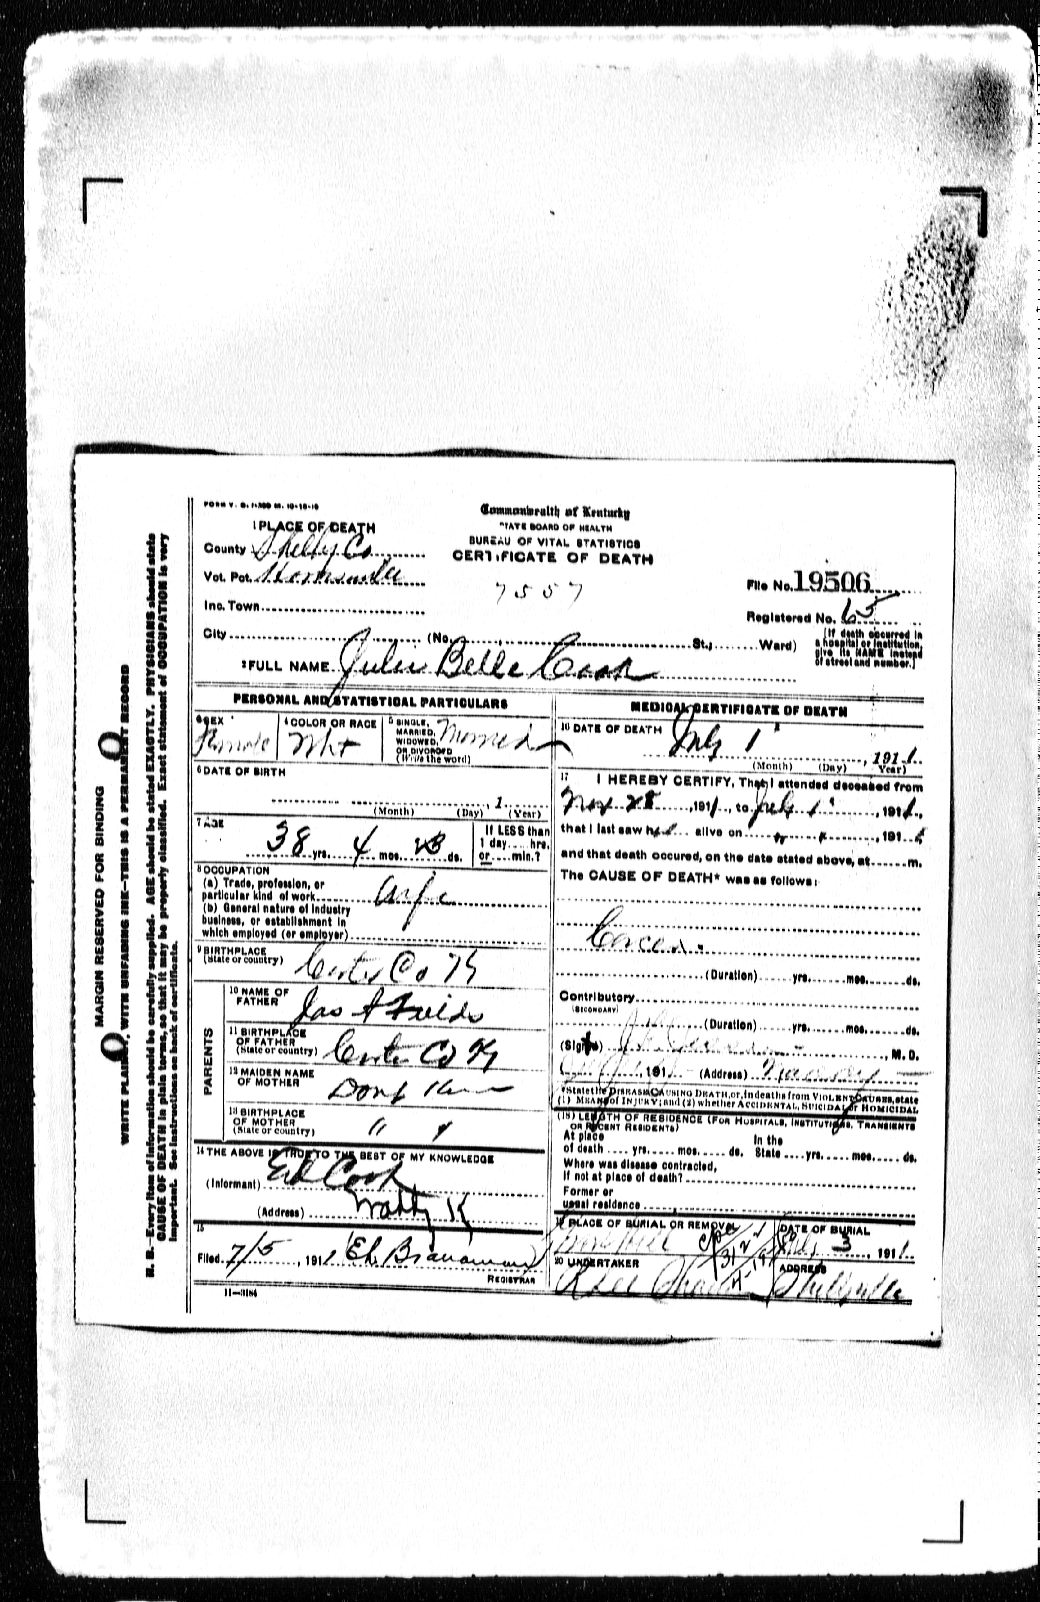 FORM V. S.
Commonwealth of Kentucky
STATE BOARD OF HEALTH
BUREAU OF VITAL STATISTICS
CERTIFICATE OF DEATH
1 PLACE OF DEATH
County Shelby Co
Vot. Pct.
Inc. Town
City (No. St., Ward)
7557
File No. 19506
Registered No. 65
(If death occurred in a hospital or institution, give its NAME instead of street and number.)
2 FULL NAME Julia Belle Cook
PERSONAL AND STATISTICAL PARTICULARS
3 SEX Female
4 COLOR OR RACE Wht
5 SINGLE, MARRIED, WIDOWED, OR DIVORCED (Write the word) Married
6 DATE OF BIRTH
, 1
(Month) (Day) (Year)
7 AGE
38 yrs. 4 mos. ds.
If LESS than 1 day.... hrs. or.... min.?
8 OCCUPATION
(a) Trade, profession, or particular kind of work
(b) General nature of industry business, or establishment in which employed (or employer)
9 BIRTHPLACE (State or country) Carter Co Ky
PARENTS
10 NAME OF FATHER Jas A Fields
11 BIRTHPLACE OF FATHER (State or country) Carter Co Ky
12 MAIDEN NAME OF MOTHER Dont Know
13 BIRTHPLACE OF MOTHER (State or country) " "
14 THE ABOVE IS TRUE TO THE BEST OF MY KNOWLEDGE
(Informant) Ed Cook
(Address) Waddy K
15
Filed 7/5, 1911
REGISTRAR
11-3184
MEDICAL CERTIFICATE OF DEATH
16 DATE OF DEATH
July 1, 1911
(Month) (Day) Year)
17 I HEREBY CERTIFY, That I attended deceased from
Nov 28, 191, to July 1, 191
that I last saw h alive on " ", 191
and that death occured, on the date stated above, at m.
The CAUSE OF DEATH* was as follows:
Cancer.
(Duration) yrs. mos. ds.
Contributory
(SECONDARY)
(Duration) yrs. mos. ds.
(Signed) , M. D.
, 191 (Address) Waddy
*State the DISEASE CAUSING DEATH, or, in deaths from VIOLENT CAUSES, state
(1) MEANS of INJURY; and (2) whether ACCIDENTAL, SUICIDAL or HOMICIDAL
(18) LENGTH OF RESIDENCE (FOR HOSPITALS, INSTITUTIONS, TRANSIENTS OR RECENT RESIDENTS)
At place of death yrs. mos. ds. In the State yrs. mos. ds.
Where was disease contracted, if not at place of death?
Former or usual residence
19 PLACE OF BURIAL OR REMOVAL
DATE OF BURIAL
July 3, 1911
20 UNDERTAKER
ADDRESS
Shelbyville
MARGIN RESERVED FOR BINDING
WRITE PLAINLY, WITH UNFADING INK—THIS IS A PERMANENT RECORD
N. B.—Every item of information should be carefully supplied. AGE should be stated EXACTLY. PHYSICIANS should state
CAUSE OF DEATH in plain terms, so that it may be properly classified. Exact statement of OCCUPATION is very
important. See instructions on back of certificate.